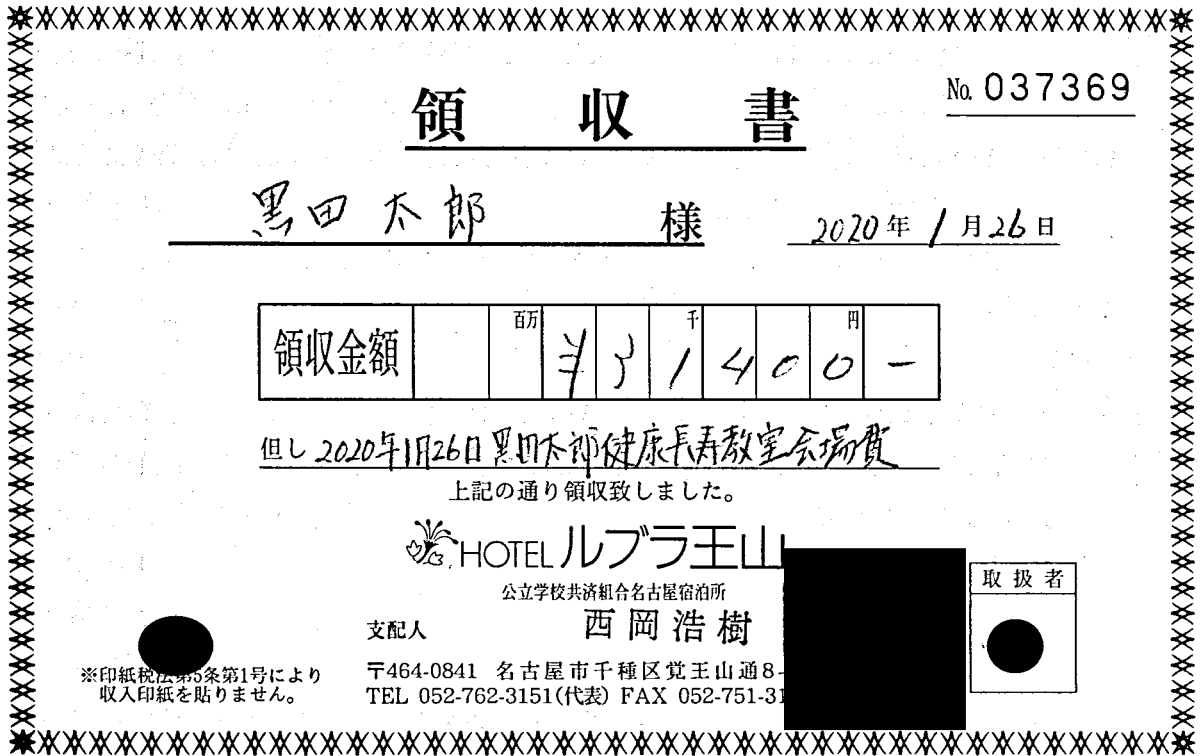 領収書
No. 037369
黒田太郎 様
2020年1月26日
領収金額 百万 千 円
¥31400-
但し 2020年1月26日黒田太郎健康長寿教室会場費
上記の通り領収致しました。
HOTEL ルブラ王山
公立学校共済組合名古屋宿泊所
支配人 西岡浩樹
取扱者
※印紙税法第5条第1号により
収入印紙を貼りません。
〒464-0841 名古屋市千種区覚王山通8-
TEL 052-762-3151(代表) FAX 052-751-31